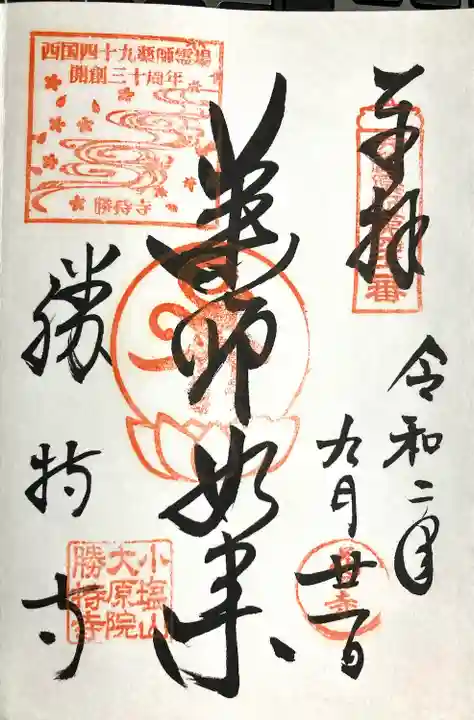 奉拝
令和二年
九月廿一日
薬師如来
勝持寺
西国四十九薬師霊場
開創三十周年
勝持寺
小塩山
大原院
勝持寺